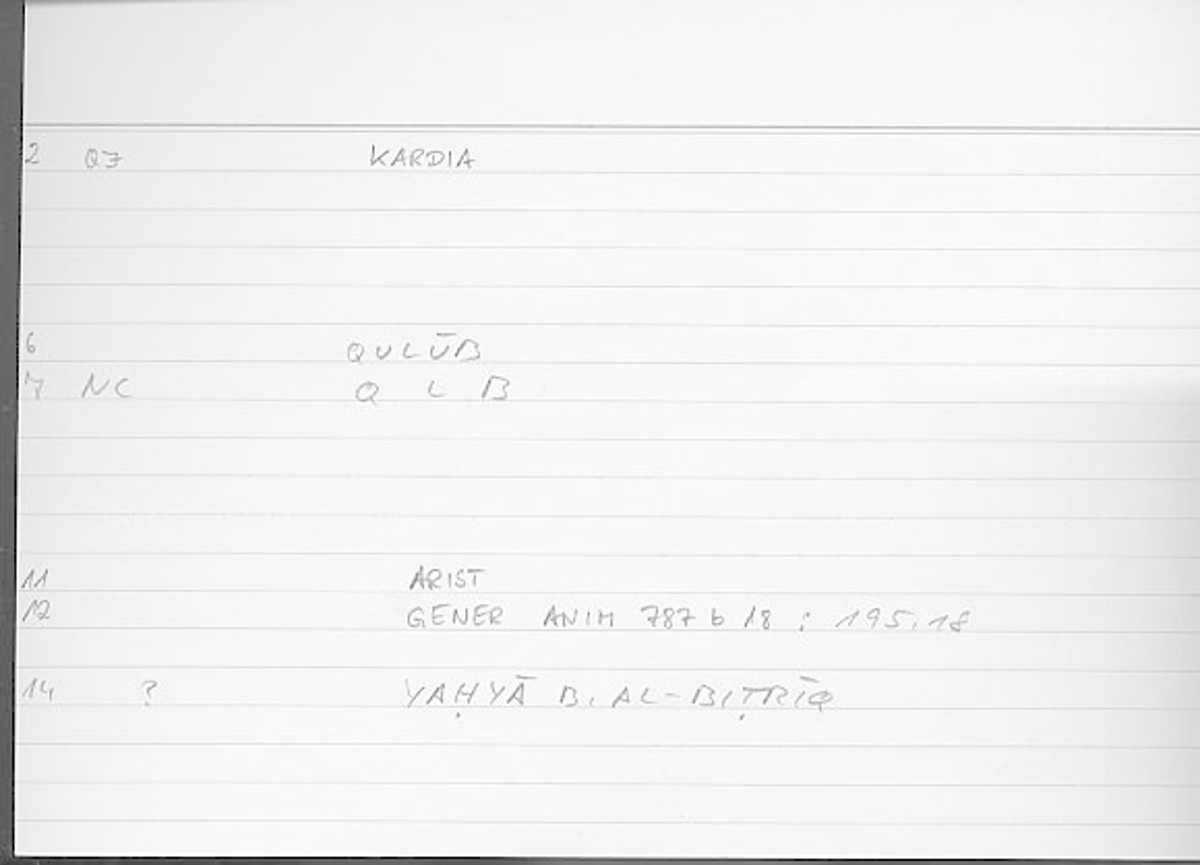 2 Q7 KARDIA
6 QULŪB
7 NC Q L B
11 ARIST
12 GENER ANIM 787 b 18 : 195.18
14 ? YAḤYĀ B. AL-BIṬRĪQ